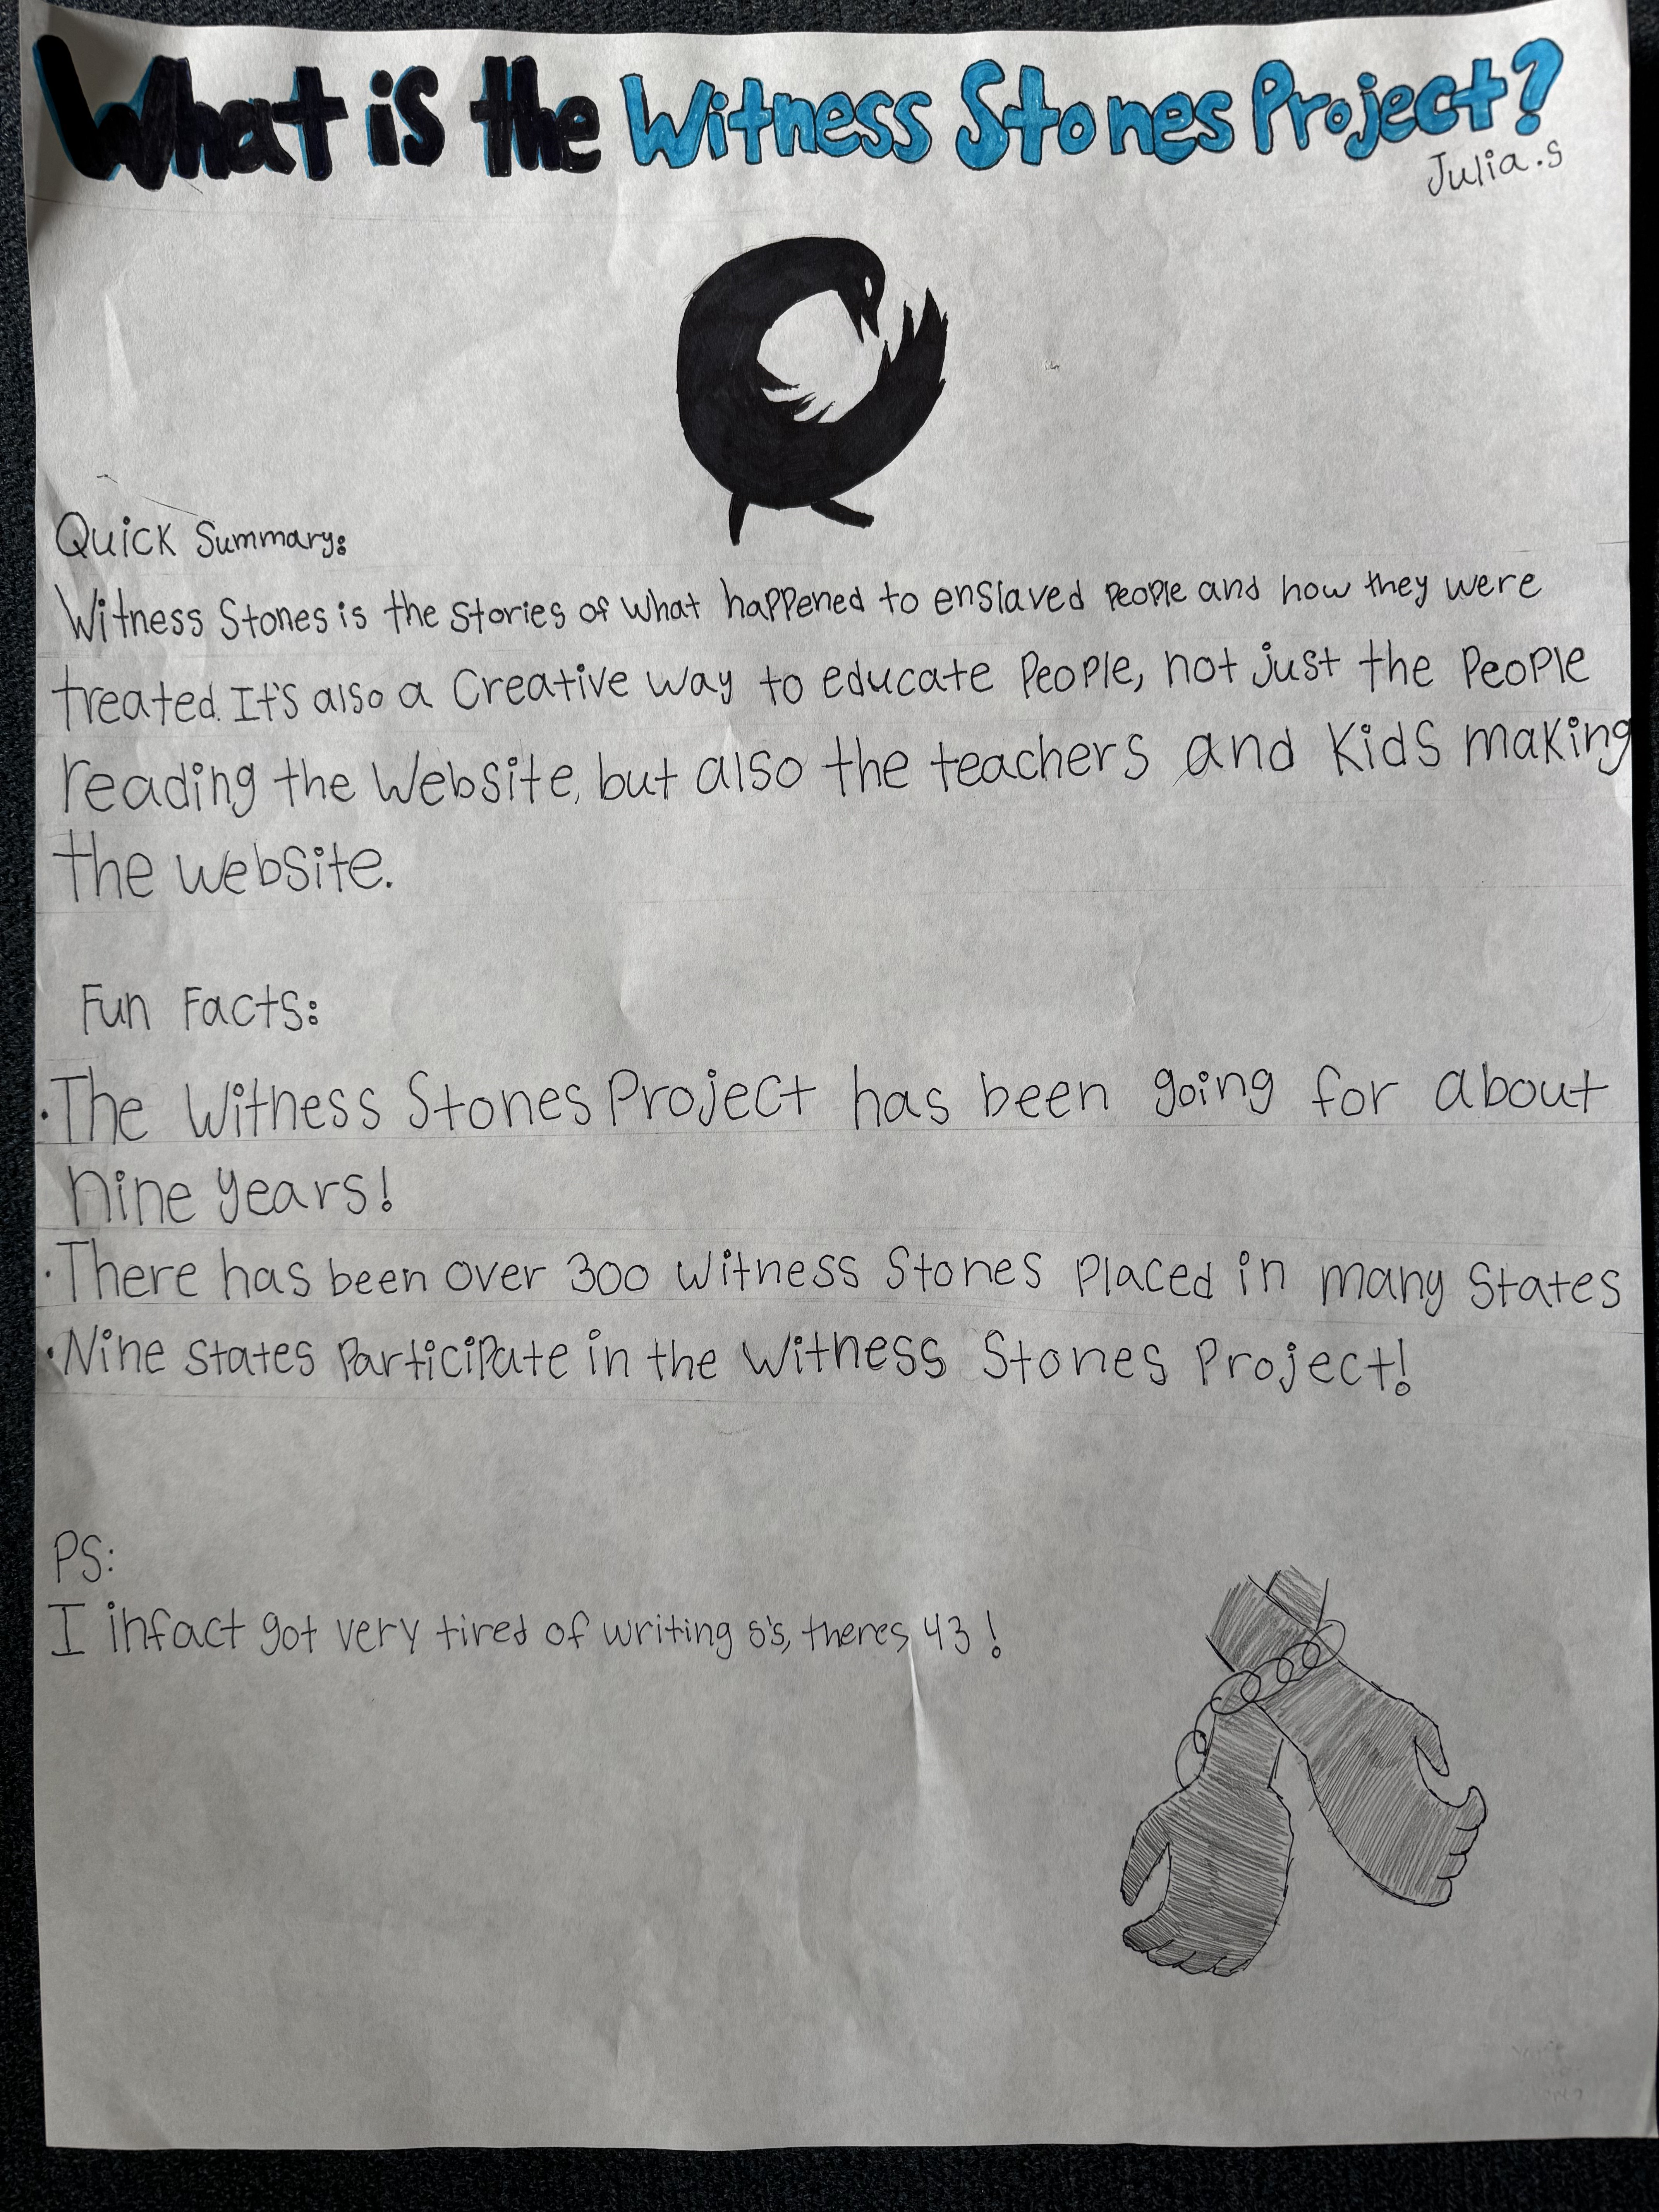 What is the Witness Stones Project?
Julia.s
Quick Summary:
Witness Stones is the stories of what happened to enslaved people and how they were
treated. It's also a creative way to educate people, not just the people
reading the website, but also the teachers and kids making
the website.
Fun Facts:
·The Witness Stones Project has been going for about
nine years!
·There has been over 300 witness Stones placed in many States
·Nine states participate in the Witness Stones Project!
PS:
I infact got very tired of writing s's, theres 43!